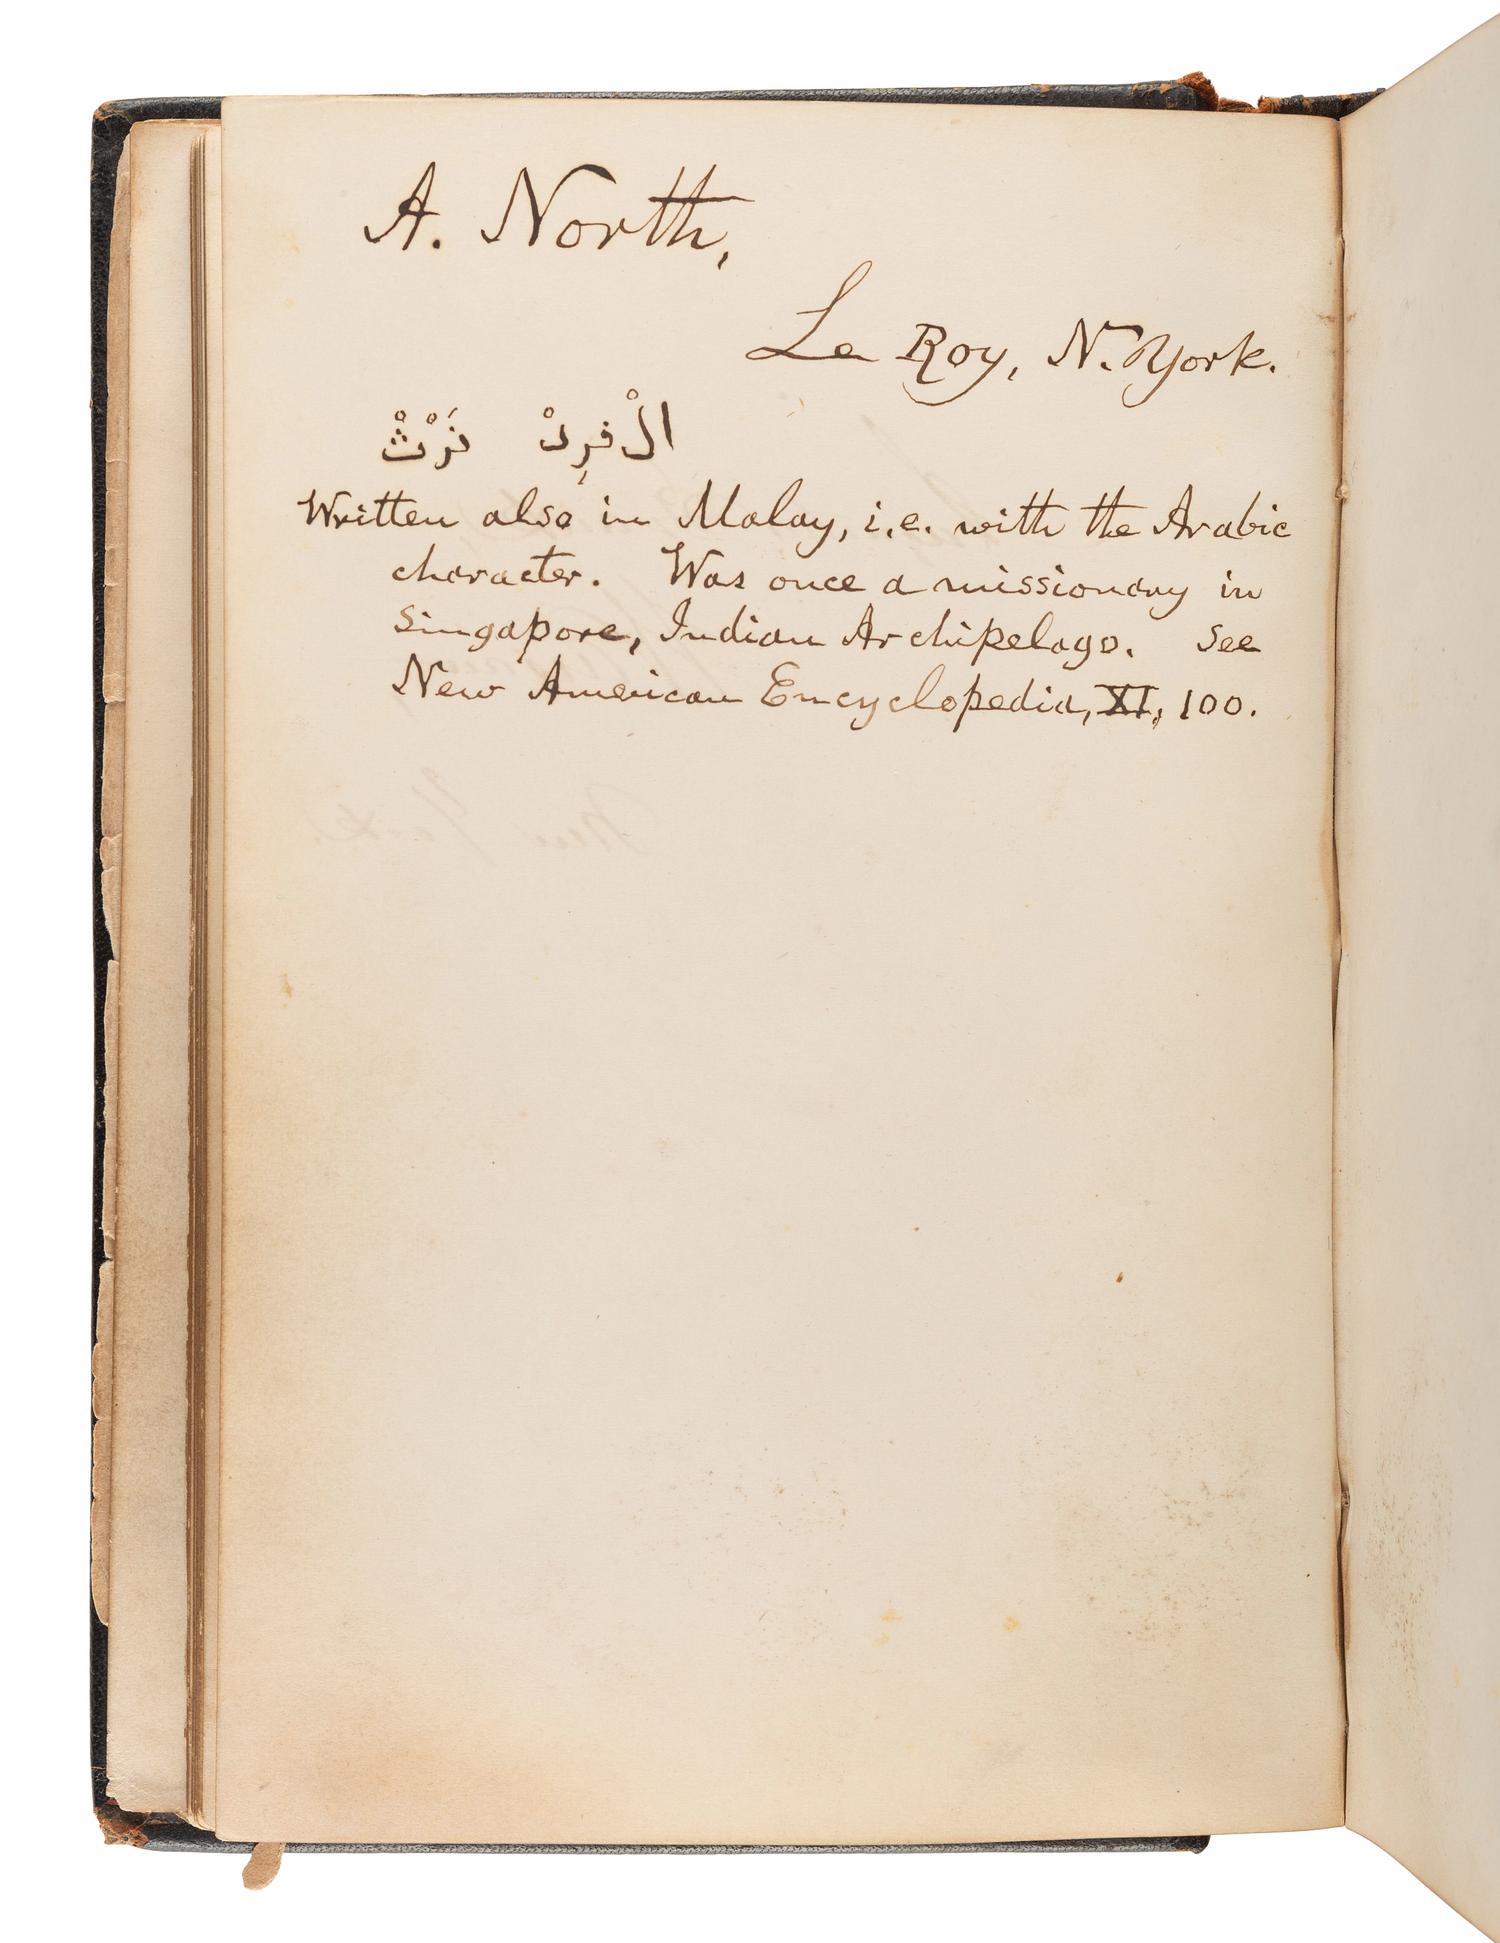 A. North,
Le Roy, N. York.
الْفرِدْ نَرْثْ
Written also in Malay, i.e. with the Arabic
character. Was once a missionary in
Singapore, Indian Archipelago. See
New American Encyclopedia, XI, 100.